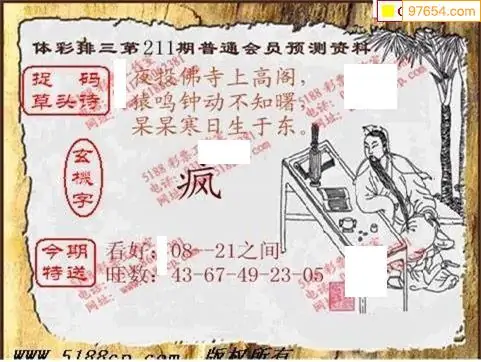 97654.com
体彩排三第211期普通会员预测资料
捉 码
草头诗
夜投佛寺上高阁,
猿鸣钟动不知曙,
杲杲寒日生于东。
玄機字
疯
今期
特送
看好:08--21之间
旺数:43-67-49-23-05
www.5188cp.com 版权所有